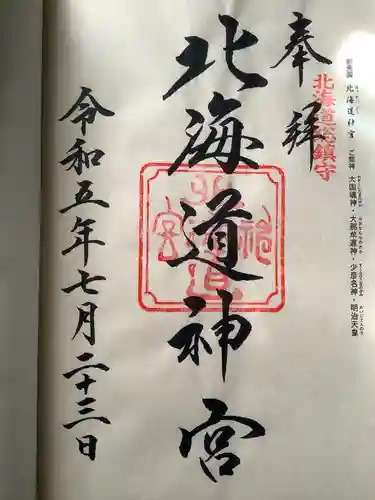 蝦夷国
北海道神宮 ご祭神
大国魂神・大那牟遅神・少彦名神・明治天皇
奉拝
北海道総鎮守
北海道神宮
令和五年七月二十三日